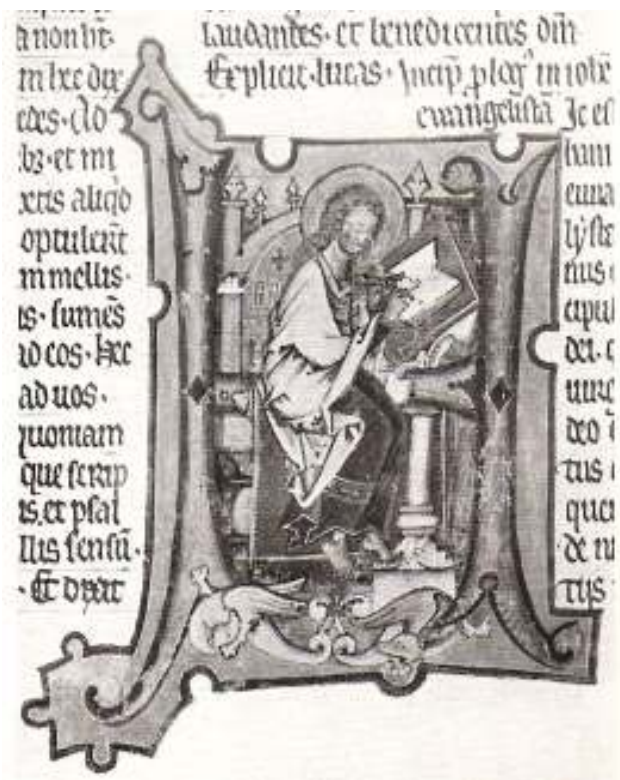 a non ht·
m hec dix
edes· Ad
·bz· et mi
xtis aliqd
optulert̄
m mellis·
is· sumēs
ad eos· hec
ad uos·
quoniam
que scrip
is. et psal
llis sensū·
· Et dixit
laudantes· et benedicentes dm̄
Explicit lucas· Incip̄ plog̾ in iohē
euangelistā Ic es
hann
euua
lyste
nus
cipul
dei·
deo
tus
de nu